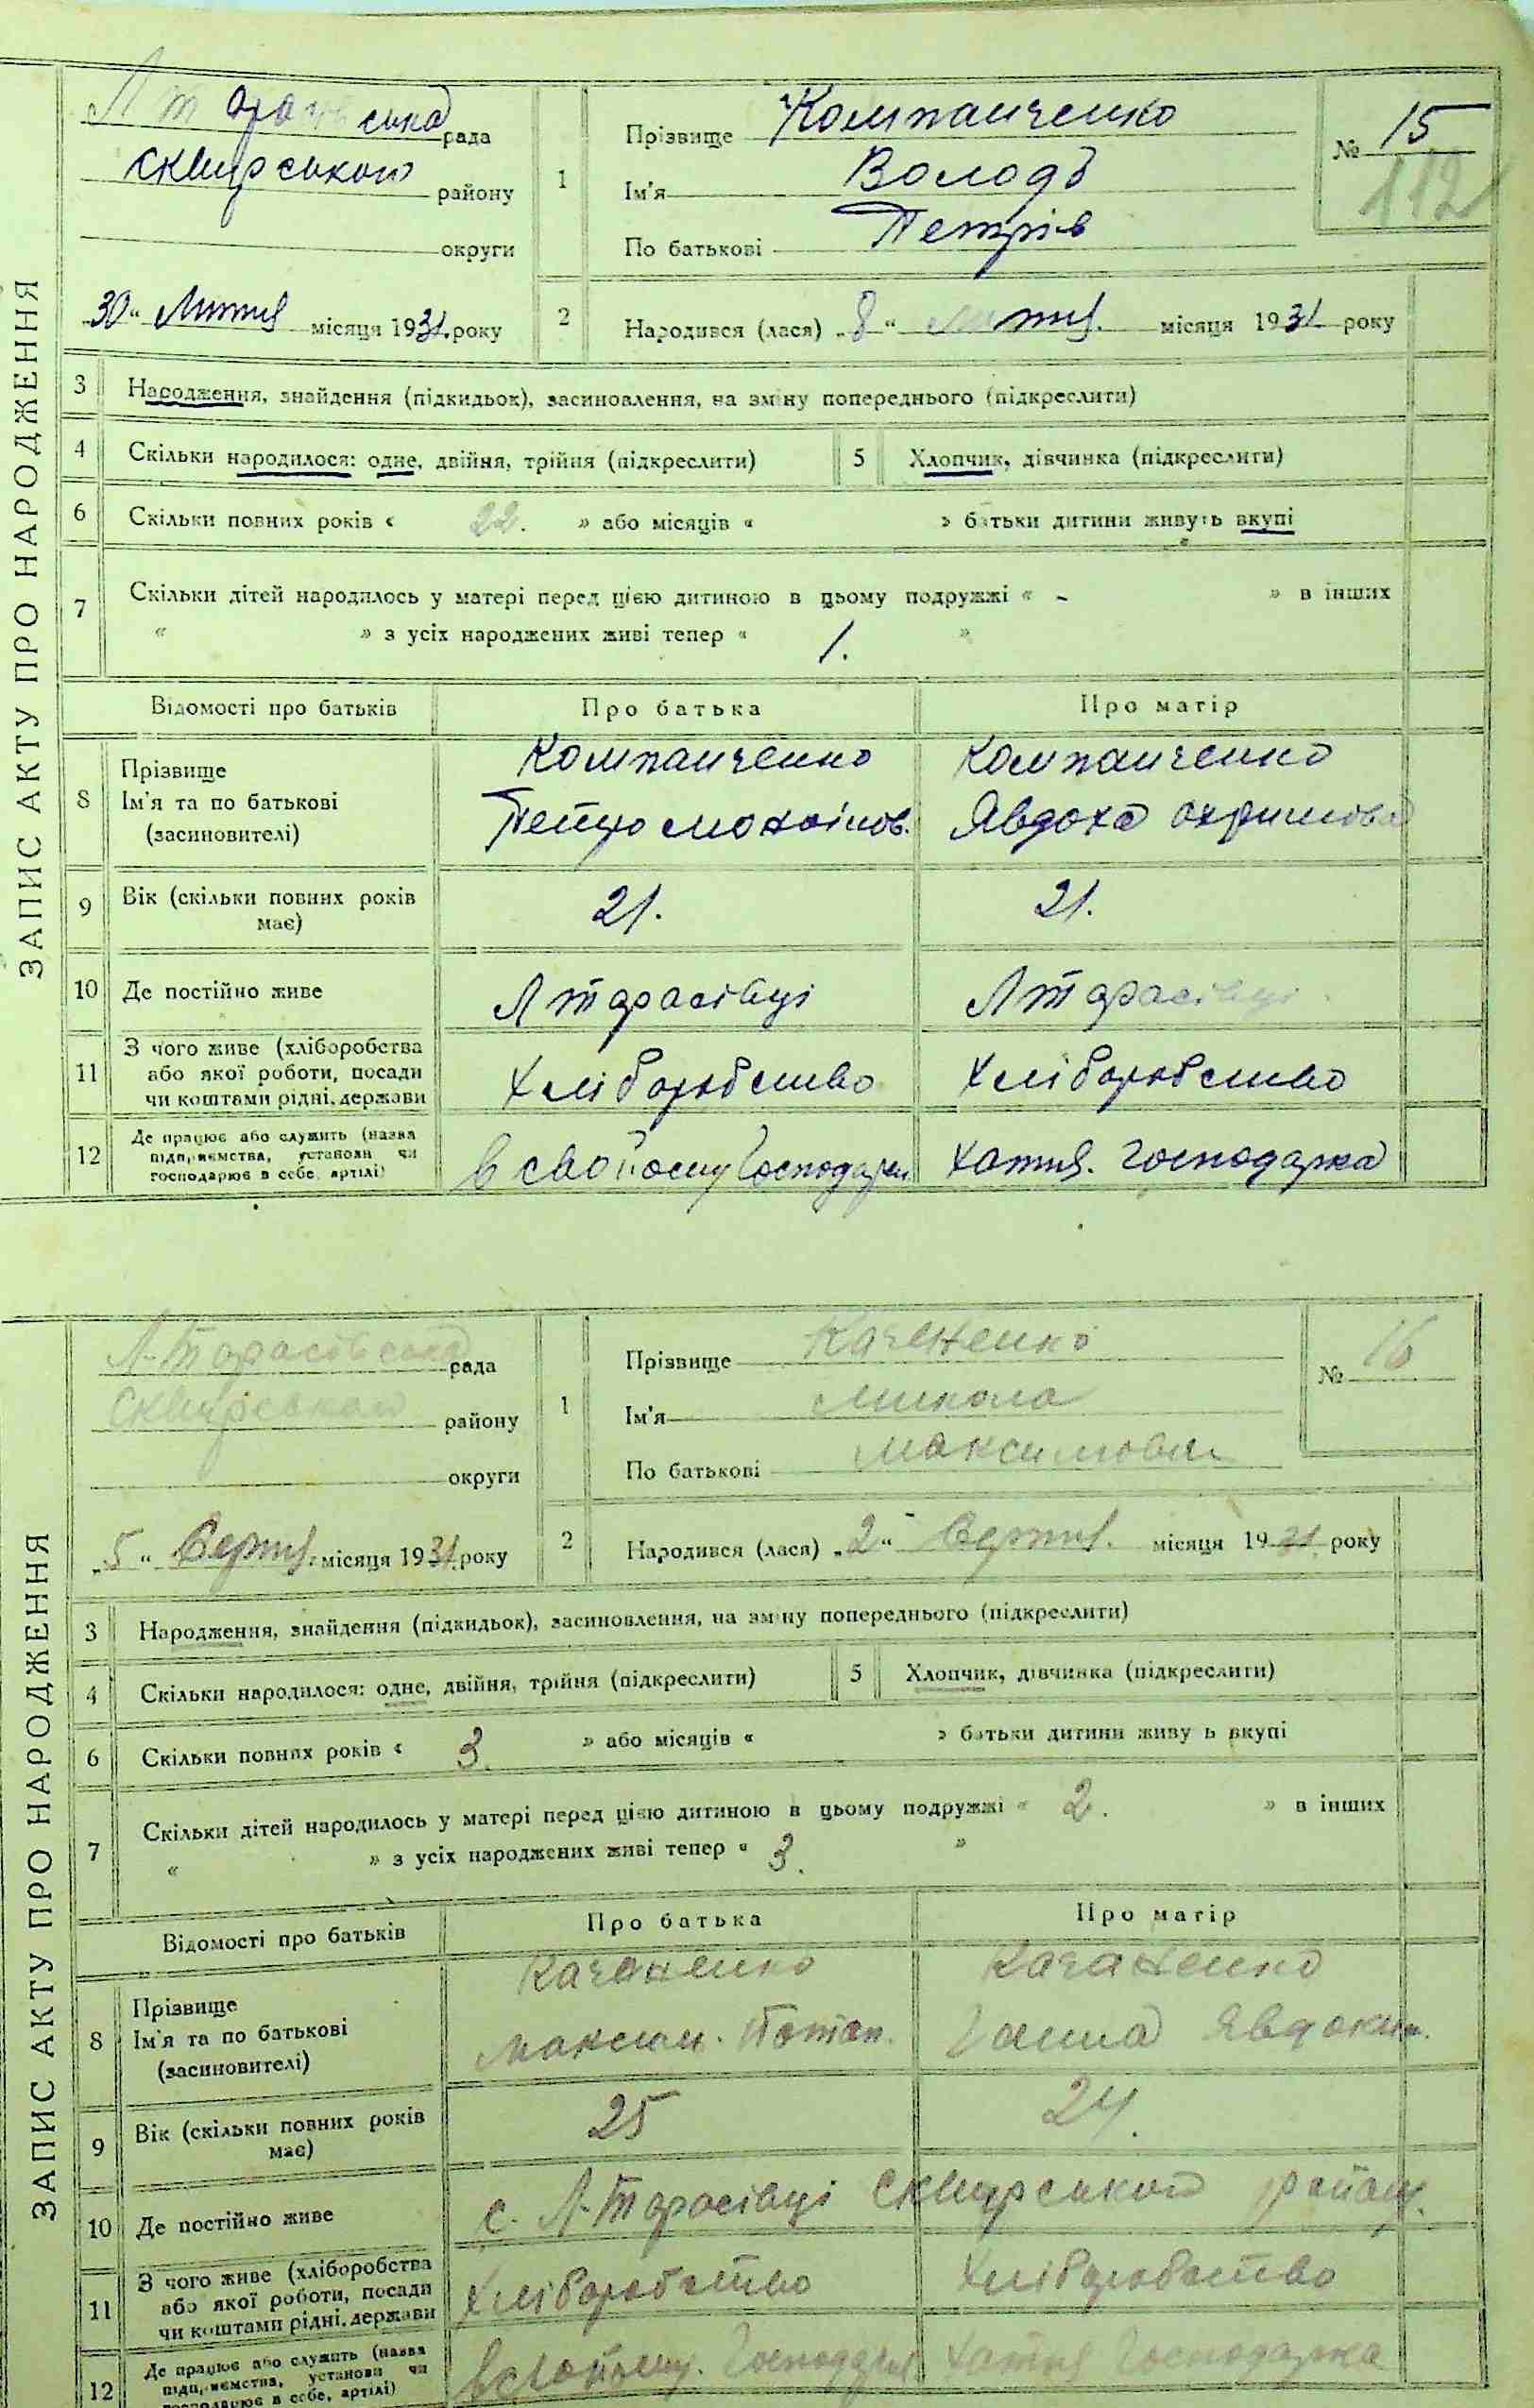 ЗАПИС АКТУ ПРО НАРОДЖЕННЯ
рада
Сквирського району
округи
„30“ Липня місяця 1931 року
1 Прізвище Компанченко
Ім'я Володь
По батькові Петрів
№ 15
112
2 Народився (лася) „8“ липня. місяця 1931 року
3 Народження, знайдення (підкидьок), засиновлення, на зміну попереднього (підкреслити)
4 Скільки народилося: одне, двійня, трійня (підкреслити) 5 Хлопчик, дівчинка (підкреслити)
6 Скільки повних років « 22. » або місяців « » батьки дитини живуть вкупі
7 Скільки дітей народилось у матері перед цією дитиною в цьому подружжі « - » в інших
« » з усіх народжених живі тепер « 1. »
Відомості про батьків Про батька Про матір
8 Прізвище Компанченко Компанченко
Ім'я та по батькові Петро Явдоха
(засиновителі)
9 Вік (скільки повних років має) 21. 21.
10 Де постійно живе Л Тарасівці Л Тарасівці
11 З чого живе (хліборобства або якої роботи, посади чи коштами рідні, держави Хліборобство Хліборобство
12 Де працює або служить (назва підприємства, установи чи господарює в себе, артілі) в свойому господарст. Хатня. господарка
ЗАПИС АКТУ ПРО НАРОДЖЕННЯ
Л-Тарасівська рада
Сквирського району
округи
„5“ Серпня. місяця 1931 року
1 Прізвище Качененко
Ім'я Микола
По батькові Максимович
№ 16
2 Народився (лася) „2“ Серпня. місяця 1931 року
3 Народження, знайдення (підкидьок), засиновлення, на зміну попереднього (підкреслити)
4 Скільки народилося: одне, двійня, трійня (підкреслити) 5 Хлопчик, дівчинка (підкреслити)
6 Скільки повних років « 3. » або місяців « » батьки дитини живу ь вкупі
7 Скільки дітей народилось у матері перед цією дитиною в цьому подружжі « 2. » в інших
« » з усіх народжених живі тепер « 3. »
Відомості про батьків Про батька Про матір
8 Прізвище Качаненко Качаненко
Ім'я та по батькові Максим. Потап. Ганна Явдоким.
(засиновителі)
9 Вік (скільки повних років має) 25 24.
10 Де постійно живе с. Л-Тарасівці Сквирського району.
11 З чого живе (хліборобства або якої роботи, посади чи коштами рідні, держави Хліборобство Хліборобство
12 Де працює або служить (назва підприємства, установи чи господарює в себе, артілі) в свойому. господарст Хатня господарка